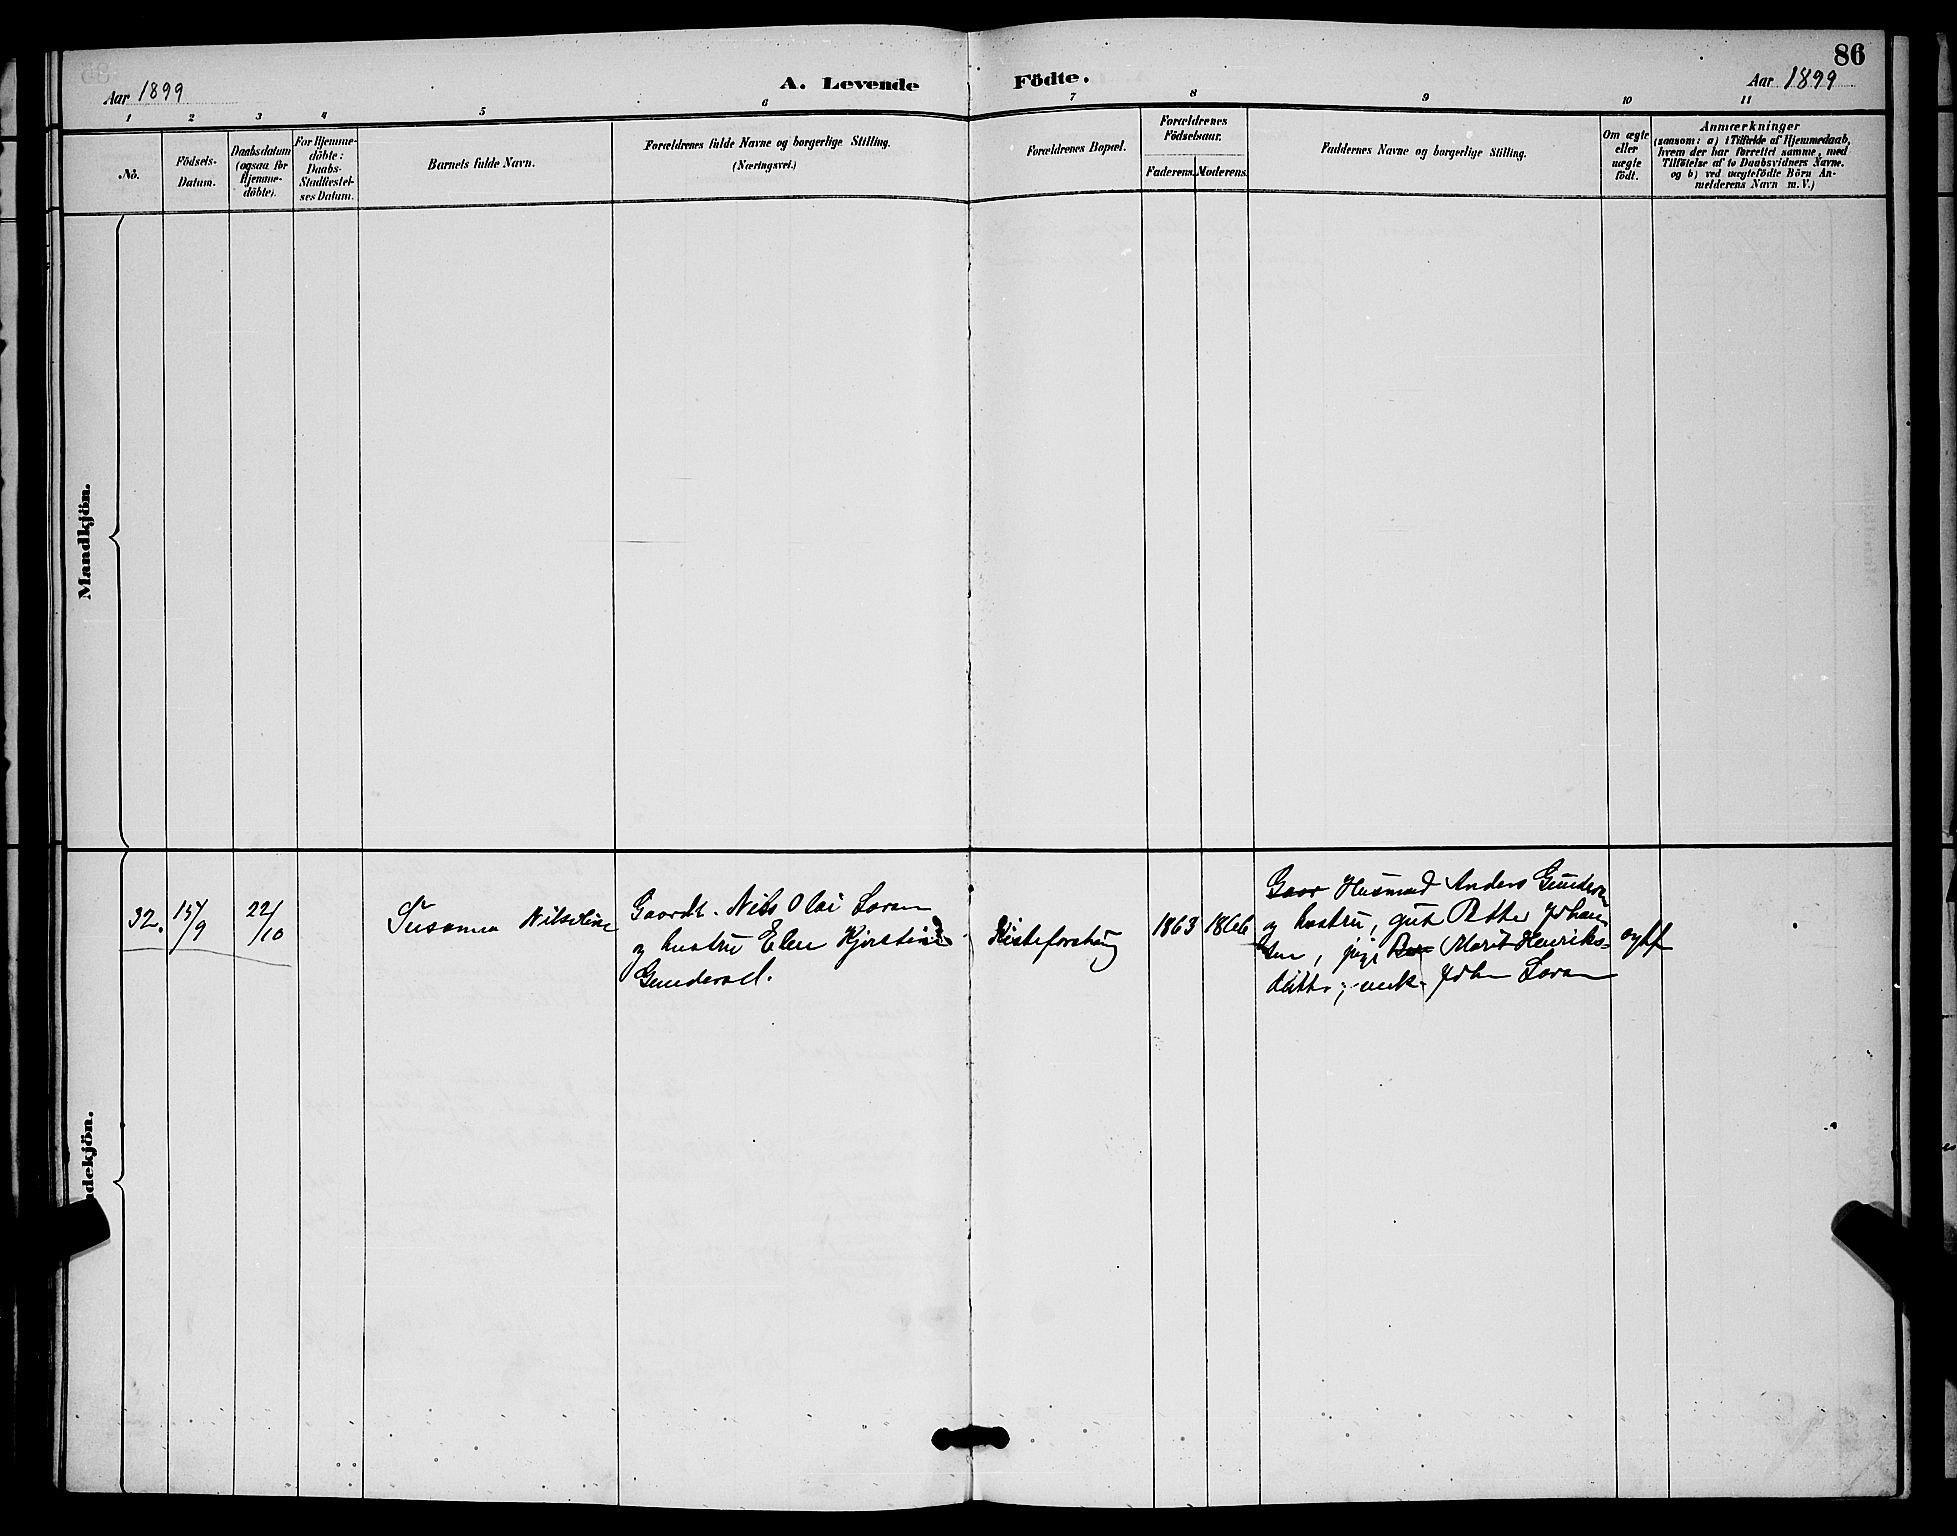 86
Aar 1899
A. Levende Födte.
Aar 1899
1 2 3 4 5 6 7 8 9 10 11
No.
Födsels-
Datum.
Daabsdatum
(ogsaa for
Hjemme-
döbte).
For Hjemme-
döbte:
Daabs-
Stadfæstel-
ses Datum.
Barnets fulde Navn.
Forældrenes fulde Navne og borgerlige Stilling.
(Næringsvei.)
Forældrenes Bopæl.
Forældrenes
Födselsaar.
Faderens. Moderens.
Faddernes Navne og borgerlige Stilling.
Om ægte
eller
uægte
födt.
Anmærkninger
(saasom: a) i Tilfælde af Hjemmedaab,
hvem der har forrettet samme, med
Tilföielse af to Daabsvidners Navne.
og b) ved uægtefödte Börn An-
melderens Navn m. V.)
Mandkjön.
ndekjön.
32.
15/9
22/10
Susanna Nilseline
Gaardb. Nils Olai
og hustru Elen Kjerstine
Gundersd.
1863
1866
Gaar Husmand Anders Gundersen
og hustru, gut Petter Johan
sen, pige Marit Henriks-
datter, enk. Johan